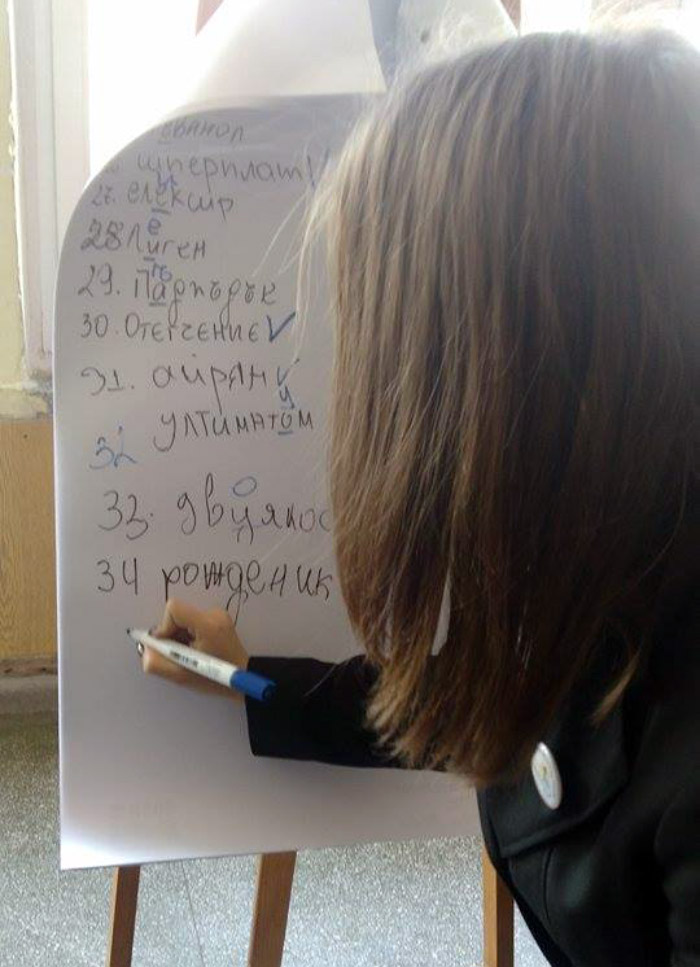 шперплат √
27. елексир
и
28 Лиген
е
29. Падпъдък
ъ
30. Отегчение √
31. айрян √
32 ултиматом
у
33. двуякос
о
34 рожденик